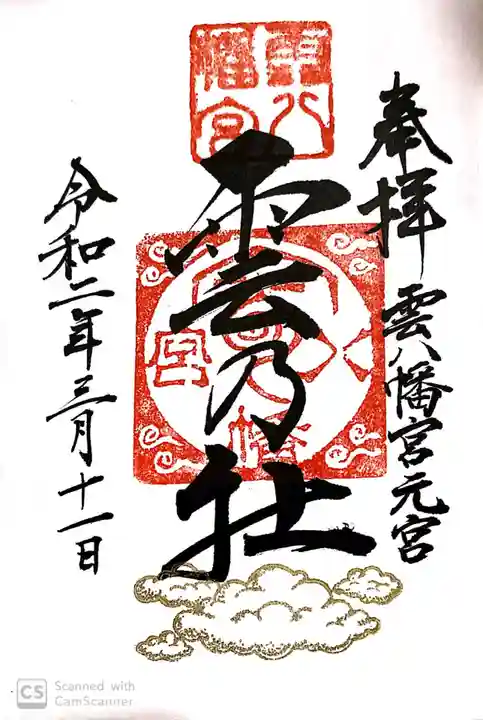 奉拝 雲八幡宮元宮
雲八幡宮
雲乃社
雲八幡宮
令和二年三月十一日
CS Scanned with
CamScanner